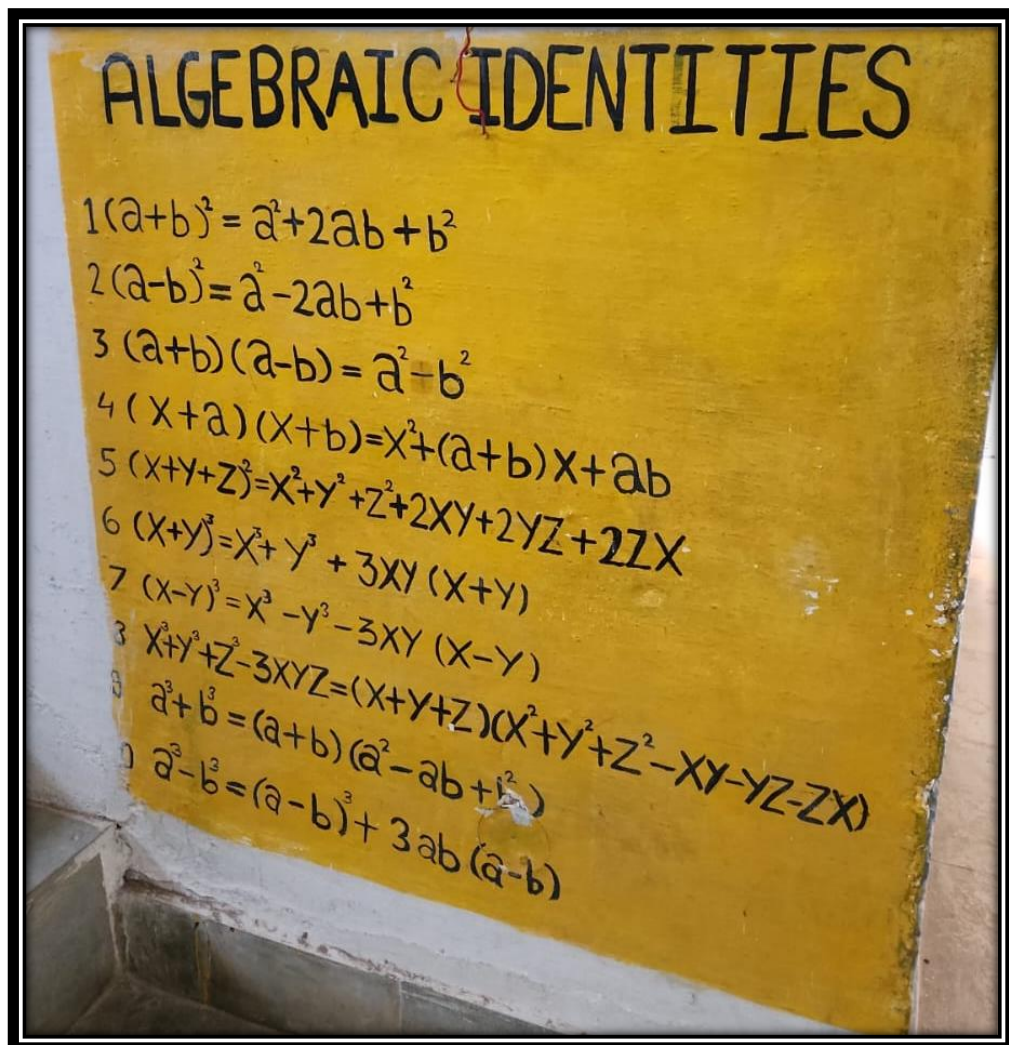 ALGEBRAIC IDENTITIES
1 (a+b)² = a²+2ab+b²
2 (a-b)² = a²-2ab+b²
3 (a+b)(a-b) = a²-b²
4 (X+a)(X+b)=X²+(a+b)X+ab
5 (X+Y+Z)²=X²+Y²+Z²+2XY+2YZ+2ZX
6 (X+Y)³=X³+Y³+3XY(X+Y)
7 (X-Y)³=X³-Y³-3XY(X-Y)
X³+Y³+Z³-3XYZ=(X+Y+Z)(X²+Y²+Z²-XY-YZ-ZX)
a³+b³=(a+b)(a²-ab+b²)
a³-b³=(a-b)³+3ab(a-b)